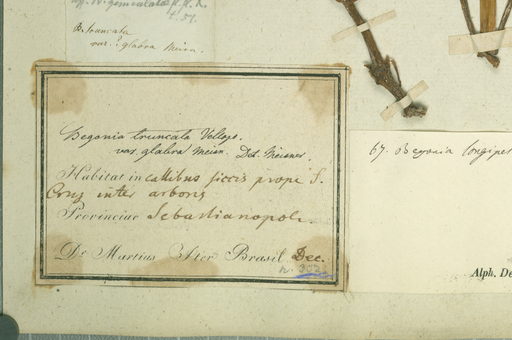 B. truncata
var. glabra Meisn.
Begonia truncata Vellozo.
var. glabra Meisn. Det. Meisner.
Habitat in collibus siccis prope S.
Cruz inter arbores
Provinciae Sebastianopol.
Dr Martius Iter Brasil. Dec.
67. Begonia longipes
Alph. De